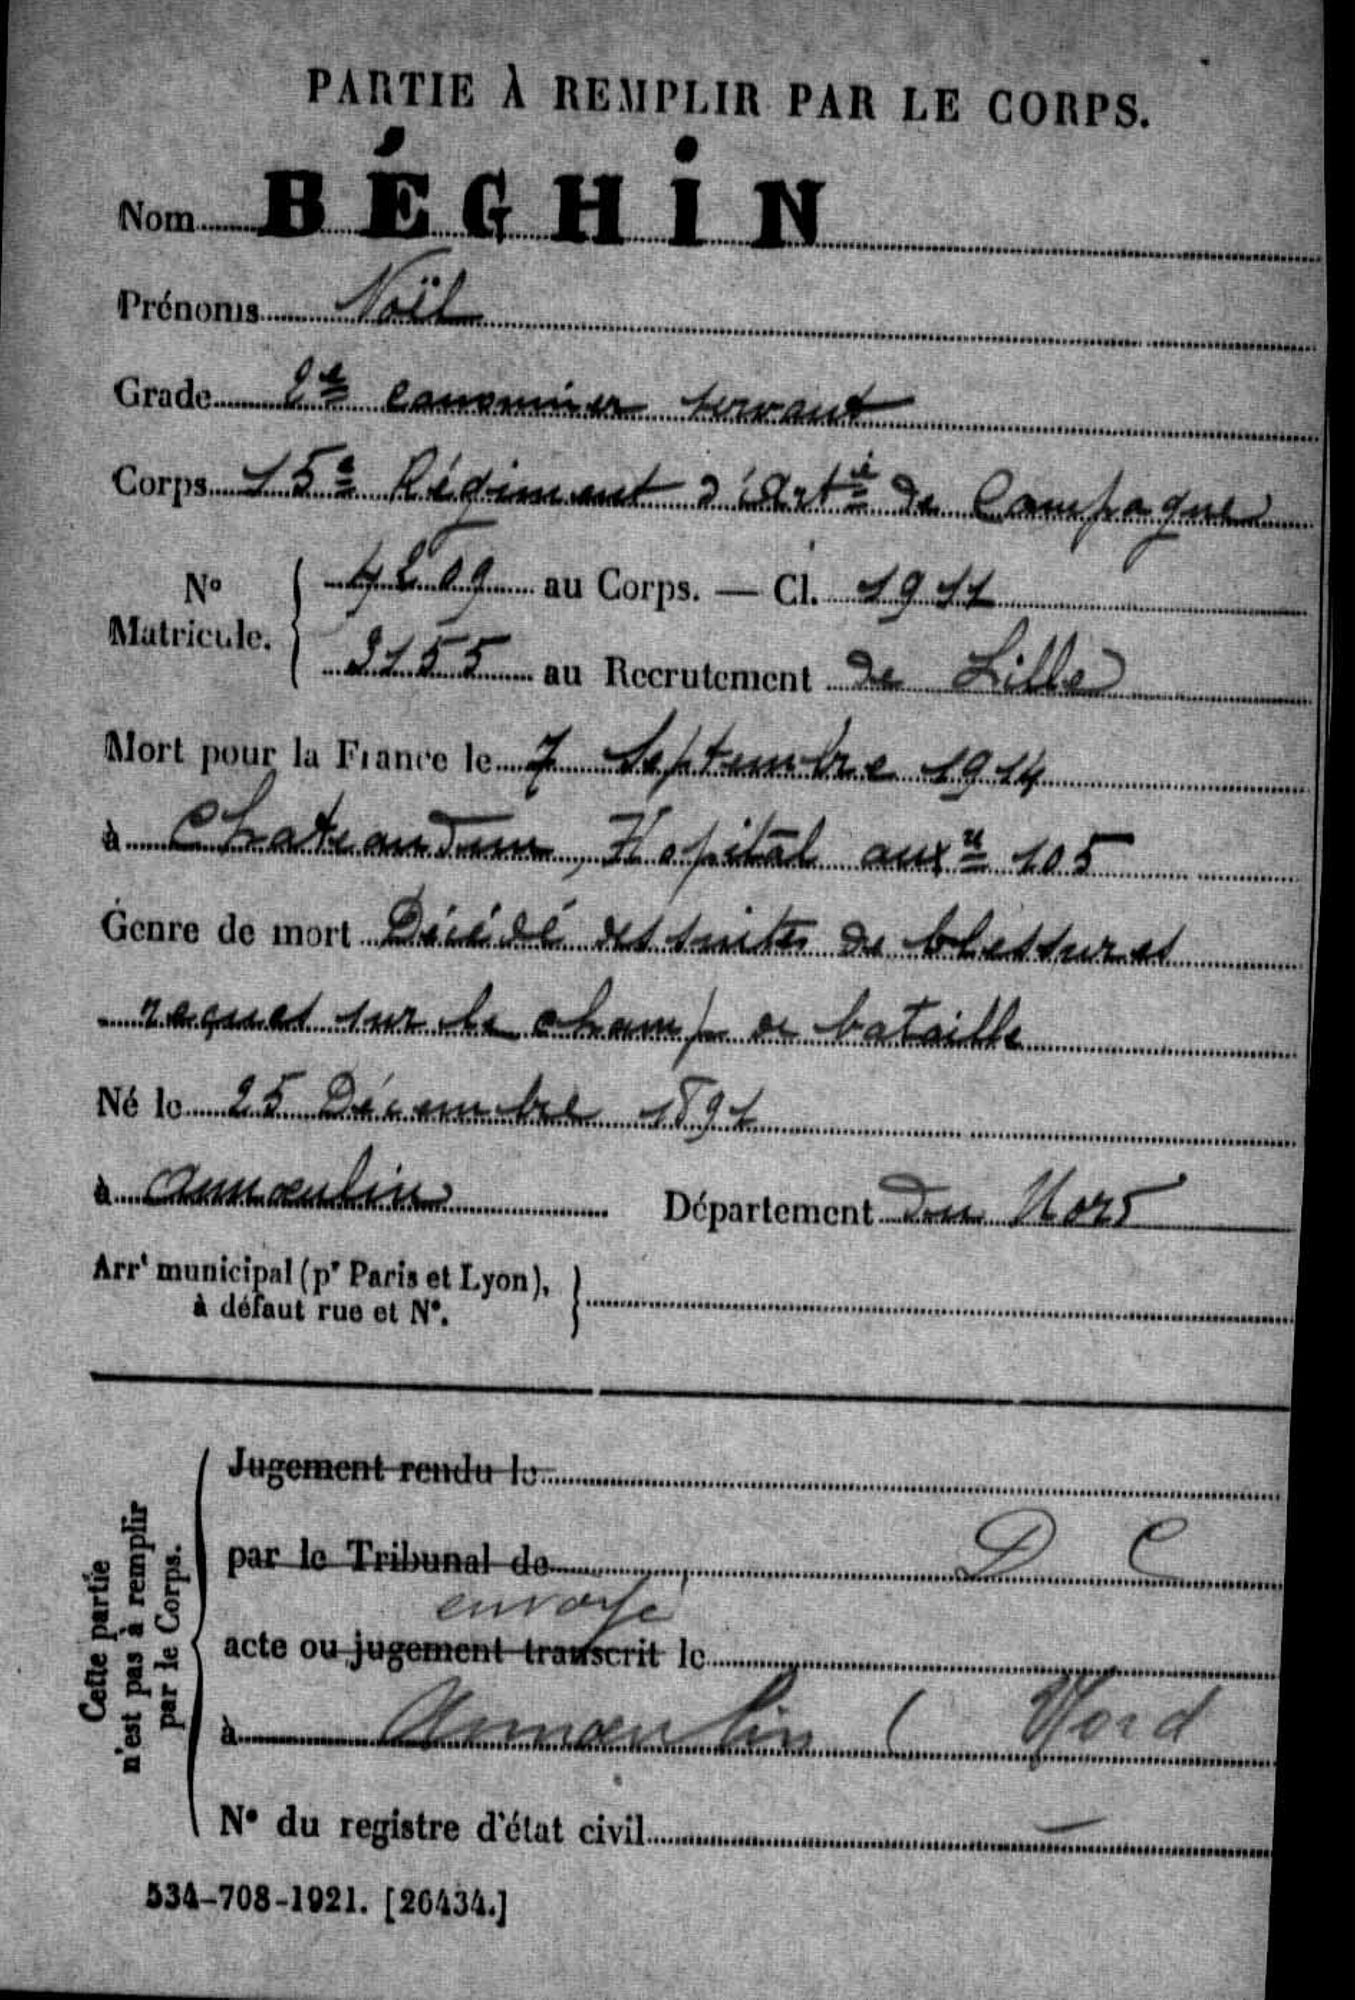 PARTIE À REMPLIR PAR LE CORPS.
Nom BÉGHIN
Prénoms Noël
Grade 2e canonnier servant
Corps 15e Régiment d'Artie de Campagne
No Matricule. 4209 au Corps. — Cl. 1911
3155 au Recrutement de Lille
Mort pour la France le 7 Septembre 1914
à Chateaudun, Hopital auxre 105
Genre de mort Décédé des suites de blessures
reçues sur le champ de bataille
Né le 25 Décembre 1891
à Annœulin Département du Nord
Arrt municipal (pr Paris et Lyon),
à défaut rue et No.
Cette partie
n'est pas à remplir
par le Corps.
Jugement rendu le
par le Tribunal de D C
envoyé
acte ou jugement transcrit le
à Annœulin ( Nord
No du registre d'état civil —
534-708-1921. [26434.]